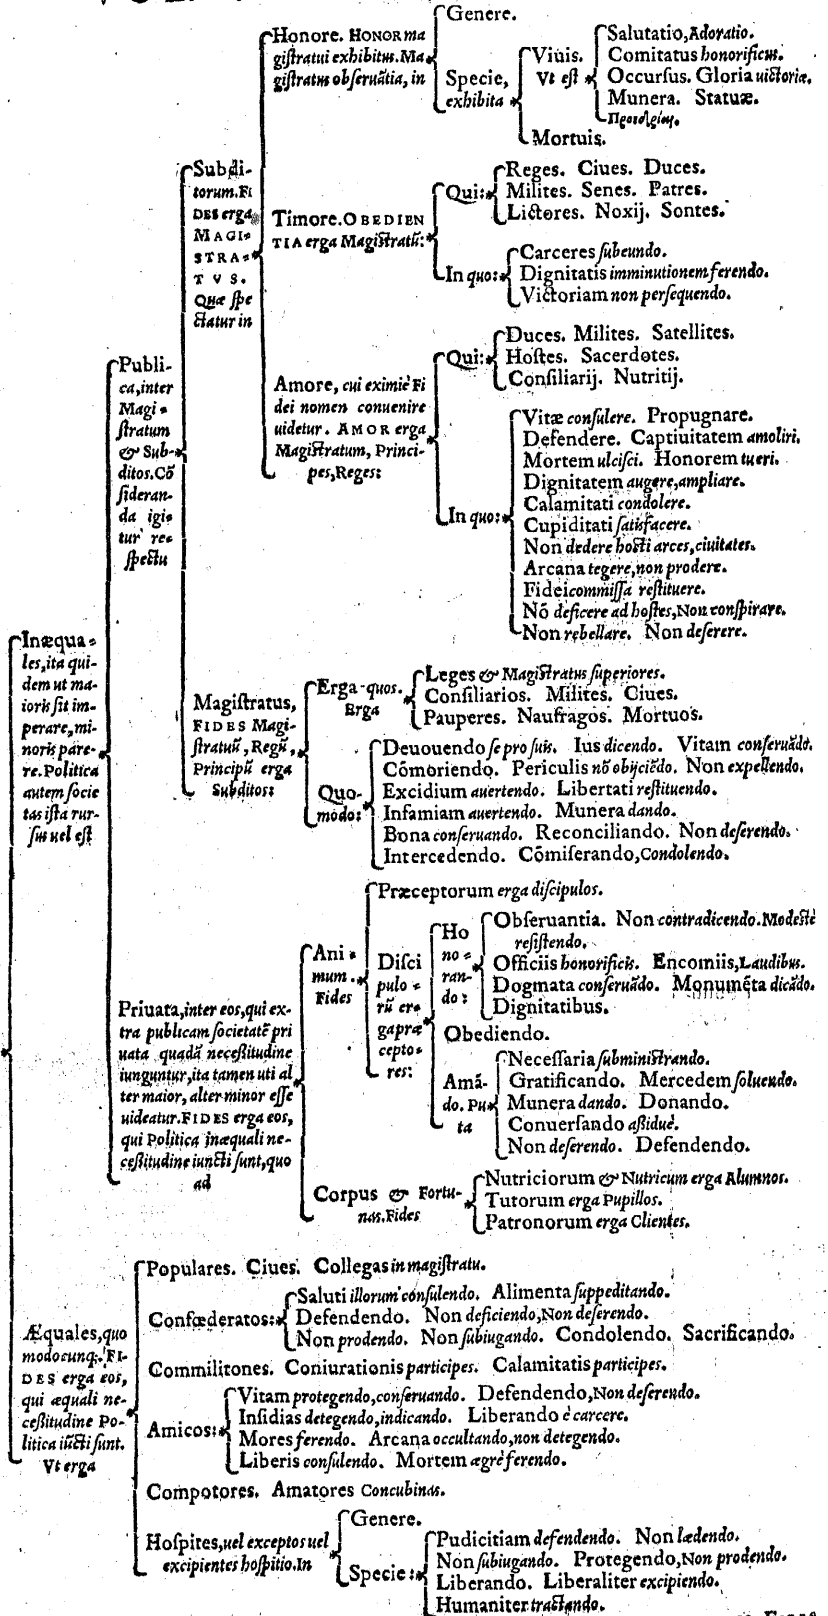 Genere.
Honore. HONOR ma
giſtratui exhibitus. Ma
giſtratus obſeruãtia, in
Specie,
exhibita
Viuis.
Vt eſt
Salutatio, Adoratio.
Comitatus honorificus.
Occurſus. Gloria uictoriæ.
Munera. Statuæ.
Mortuis.
Subdi-
torum. FI
DES erga
MAGI-
STRA-
TVS.
Quæ ſpe
ctatur in
Timore. OBEDIEN
TIA erga Magiſtratũ:
Qui:
Reges. Ciues. Duces.
Milites. Senes. Patres.
Lictores. Noxij. Sontes.
In quo:
Carceres ſubeundo.
Dignitatis imminutionem ferendo.
Victoriam non perſequendo.
Amore, cui eximiè Fi
dei nomen conuenire
uidetur. AMOR erga
Magiſtratum, Princi-
pes, Reges:
Qui:
Duces. Milites. Satellites.
Hoſtes. Sacerdotes.
Conſiliarij. Nutritij.
In quo:
Vitæ conſulere. Propugnare.
Defendere. Captiuitatem amoliri.
Mortem ulciſci. Honorem tueri.
Dignitatem augere, ampliare.
Calamitati condolere.
Cupiditati ſatisfacere.
Non dedere hoſti arces, ciuitates.
Arcana tegere, non prodere.
Fideicommiſſa reſtituere.
Nõ deficere ad hoſtes, Non conſpirare.
Non rebellare. Non deſerere.
Publi-
ca, inter
Magi-
ſtratum
& Sub-
ditos. Cõ
ſideran-
da igi-
tur re-
ſpectu
Magiſtratus,
FIDES Magi-
ſtratuũ, Regũ,
Principũ erga
Subditos:
Erga quos.
Erga
Leges & Magiſtratus ſuperiores.
Conſiliarios. Milites. Ciues.
Pauperes. Naufragos. Mortuos.
Quo-
modo:
Deuouendo ſe pro ſuis. Ius dicendo. Vitam conſeruãdo.
Cõmoriendo. Periculis nõ obijciẽdo. Non expellendo.
Excidium auertendo. Libertati reſtituendo.
Infamiam auertendo. Munera dando.
Bona conſeruando. Reconciliando. Non deſerendo.
Intercedendo. Cõmiſerando, Condolendo.
Inæqua-
les, ita qui-
dem ut ma-
ioris ſit im-
perare, mi-
noris pare-
re. Politica
autem ſocie
tas iſta rur-
ſus uel eſt
Priuata, inter eos, qui ex-
tra publicam ſocietatẽ pri
uata quadã neceſsitudine
iunguntur, ita tamen uti al
ter maior, alter minor eſſe
uideatur. FIDES erga eos,
qui Politica inæquali ne-
ceſsitudine iuncti ſunt, quo
ad
Ani-
mum.
Fides
Præceptorum erga diſcipulos.
Diſci
pulo-
rũ er-
ga præ
cepto-
res:
Ho
no-
ran-
do:
Obſeruantia. Non contradicendo. Modeſtè
reſiſtendo.
Officiis honorificis. Encomiis, Laudibus.
Dogmata conſeruãdo. Monumẽta dicãdo.
Dignitatibus.
Obediendo.
Amã-
do. Pu
ta
Neceſſaria ſubminiſtrando.
Gratificando. Mercedem ſoluendo.
Munera dando. Donando.
Conuerſando aſsiduè.
Non deſerendo. Defendendo.
Corpus & Fortu-
nas. Fides
Nutriciorum & Nutricum erga Alumnos.
Tutorum erga Pupillos.
Patronorum erga Clientes.
Æquales, quo
modocunq;. FI-
DES erga eos,
qui æquali ne-
ceſsitudine Po-
litica iũcti ſunt.
Vt erga
Populares. Ciues. Collegas in magiſtratu.
Confœderatos:
Saluti illorum conſulendo. Alimenta ſuppeditando.
Defendendo. Non deficiendo, Non deſerendo.
Non prodendo. Non ſubiugando. Condolendo. Sacrificando.
Commilitones. Coniurationis participes. Calamitatis participes.
Amicos:
Vitam protegendo, conſeruando. Defendendo, Non deſerendo.
Inſidias detegendo, indicando. Liberando è carcere.
Mores ferendo. Arcana occultando, non detegendo.
Liberis conſulendo. Mortem ægrè ferendo.
Compotores. Amatores Concubinas.
Hoſpites, uel exceptos uel
excipientes hoſpitio. In
Genere.
Specie:
Pudicitiam defendendo. Non lædendo.
Non ſubiugando. Protegendo, Non prodendo.
Liberando. Liberaliter excipiendo.
Humaniter tractando.